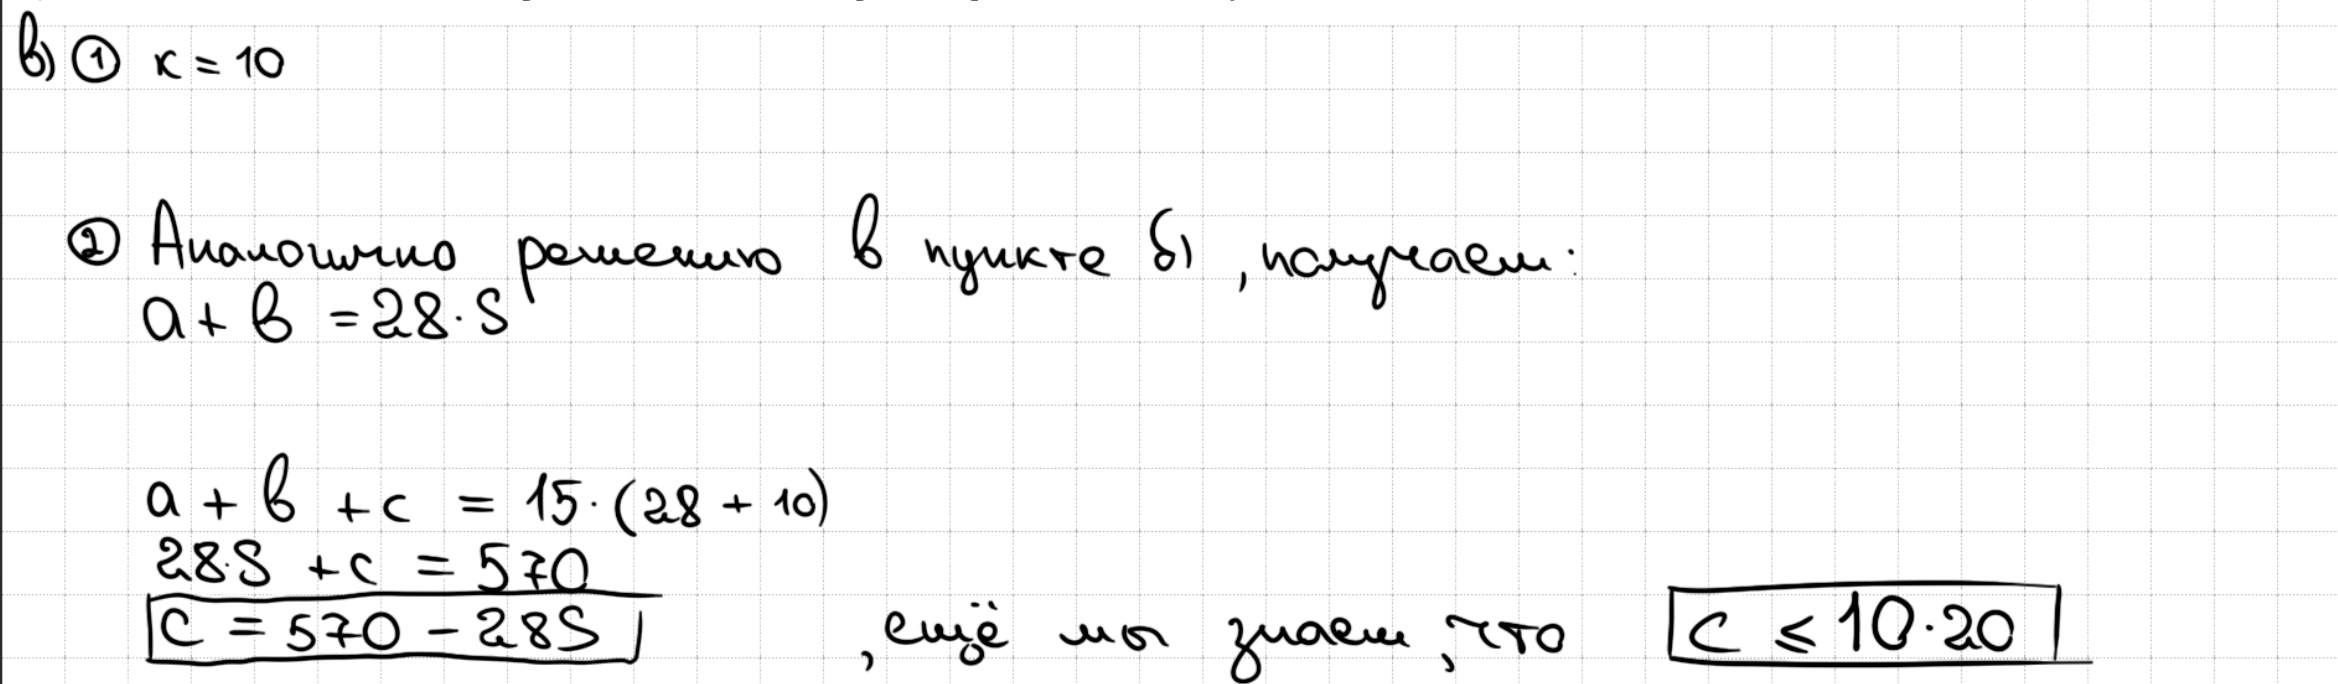 в) ① к = 10
② Аналогично решению в пункте б), получаем:
a + b = 28·S
a + b + c = 15·(28 + 10)
28·S + c = 570
c = 570 - 28S , ещё мы знаем, что c ≤ 10·20